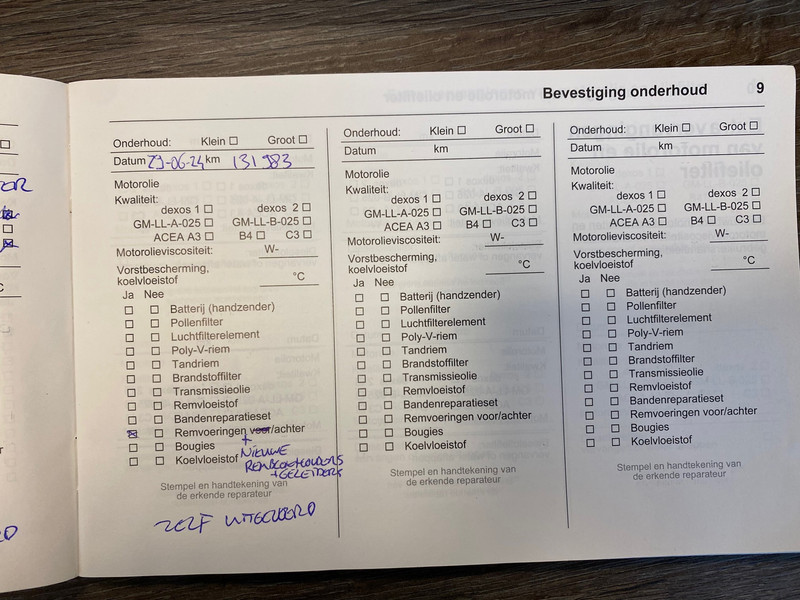 Bevestiging onderhoud 9
Onderhoud: Klein ☐ Groot ☐
Datum 29-06-24 km 131983
Motorolie
Kwaliteit:
dexos 1 ☐ dexos 2 ☐
GM-LL-A-025 ☐ GM-LL-B-025 ☐
ACEA A3 ☐ B4 ☐ C3 ☐
Motorolieviscositeit: W-
Vorstbescherming,
koelvloeistof °C
Ja Nee
☐ ☐ Batterij (handzender)
☐ ☐ Pollenfilter
☐ ☐ Luchtfilterelement
☐ ☐ Poly-V-riem
☐ ☐ Tandriem
☐ ☐ Brandstoffilter
☐ ☐ Transmissieolie
☐ ☐ Remvloeistof
☐ ☐ Bandenreparatieset
☒ ☐ Remvoeringen voor/achter
☐ ☐ Bougies
☐ ☐ Koelvloeistof
+ NIEUWE
REMBLOKHOUDERS
+ GELEIDERS
Stempel en handtekening van
de erkende reparateur
ZELF UITGEVOERD
Onderhoud: Klein ☐ Groot ☐
Datum km
Motorolie
Kwaliteit:
dexos 1 ☐ dexos 2 ☐
GM-LL-A-025 ☐ GM-LL-B-025 ☐
ACEA A3 ☐ B4 ☐ C3 ☐
Motorolieviscositeit: W-
Vorstbescherming,
koelvloeistof °C
Ja Nee
☐ ☐ Batterij (handzender)
☐ ☐ Pollenfilter
☐ ☐ Luchtfilterelement
☐ ☐ Poly-V-riem
☐ ☐ Tandriem
☐ ☐ Brandstoffilter
☐ ☐ Transmissieolie
☐ ☐ Remvloeistof
☐ ☐ Bandenreparatieset
☐ ☐ Remvoeringen voor/achter
☐ ☐ Bougies
☐ ☐ Koelvloeistof
Stempel en handtekening van
de erkende reparateur
Onderhoud: Klein ☐ Groot ☐
Datum km
Motorolie
Kwaliteit:
dexos 1 ☐ dexos 2 ☐
GM-LL-A-025 ☐ GM-LL-B-025 ☐
ACEA A3 ☐ B4 ☐ C3 ☐
Motorolieviscositeit: W-
Vorstbescherming,
koelvloeistof °C
Ja Nee
☐ ☐ Batterij (handzender)
☐ ☐ Pollenfilter
☐ ☐ Luchtfilterelement
☐ ☐ Poly-V-riem
☐ ☐ Tandriem
☐ ☐ Brandstoffilter
☐ ☐ Transmissieolie
☐ ☐ Remvloeistof
☐ ☐ Bandenreparatieset
☐ ☐ Remvoeringen voor/achter
☐ ☐ Bougies
☐ ☐ Koelvloeistof
Stempel en handtekening van
de erkende reparateur